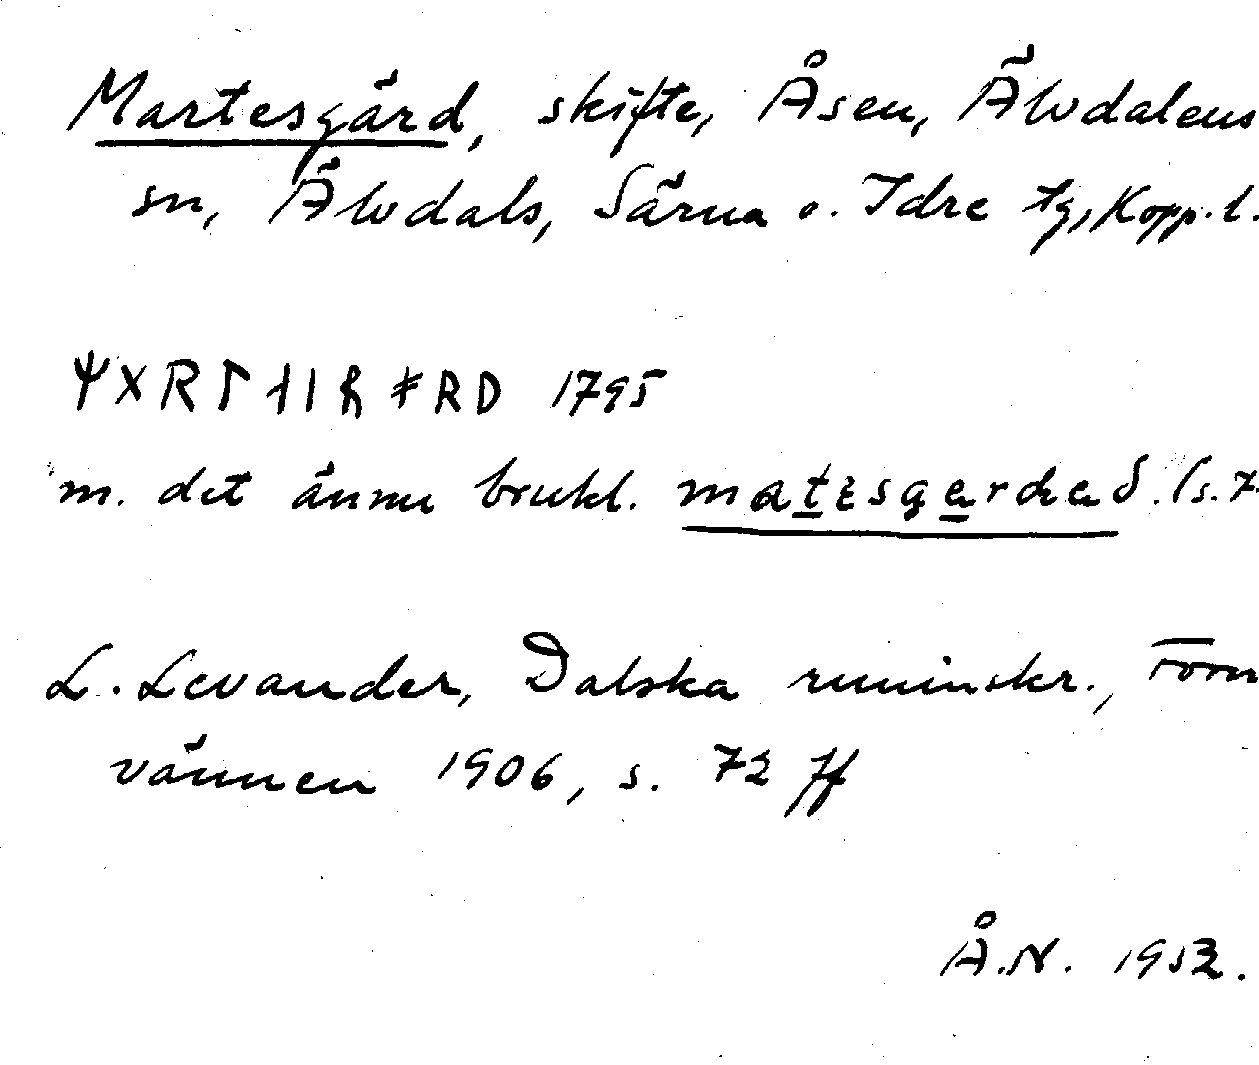 Martesgård, skifte, Åsen, Älvdalens
sn, Älvdals, Särna o. Idre tg, Kopp. l.
ᛘ X R ᛚ ᛆ ᛁ ᚯ R D 1795
m. det ännu brukl. matesgardeð. (s. 7
L. Levander, Dalska runinskr., Forn
vännen 1906, s. 72 ff
Å.N. 1952.